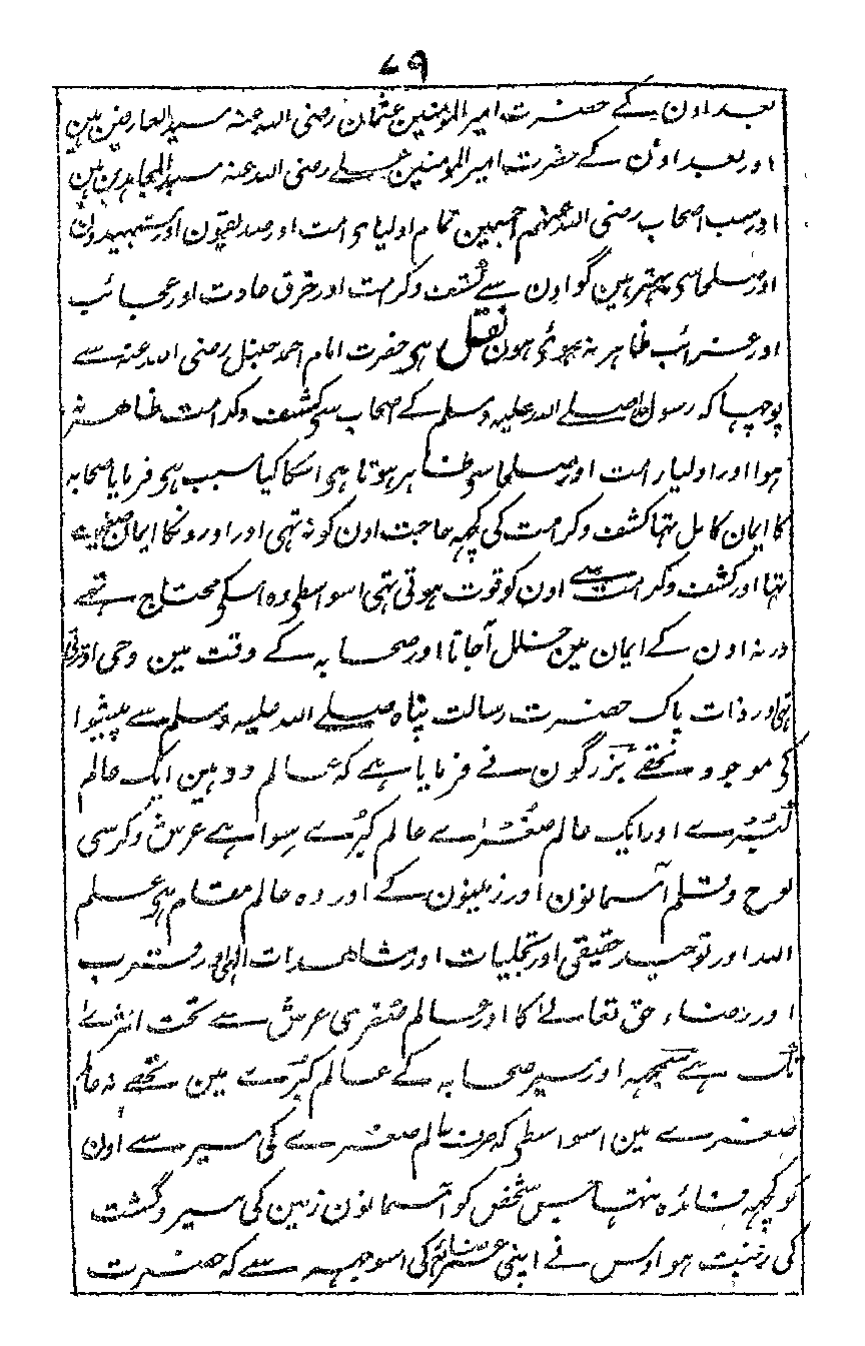 ۷۹
بعد اون کے حضرت امیر المومنین عثمان رضی اللہ عنہ سید العارفین ہین
اور بعد اون کے حضرت امیر المومنین علے رضی اللہ عنہ سید المجاہدین ہین
اور سب اصحاب رضی اللہ عنہم اجمعین تمام اولیای امت اور صدیقون اور شہیدون
اور صلحا سی بہتر ہین گو اون سے کشف وکرامت اور خرق عادت اور عجائب
اور غرائب ظاہر نہ ہوئی ہون نقل ہی حضرت امام احمد حنبل رضی اللہ عنہ سے
پوچہا کہ رسول صلے اللہ علیہ وسلم کے صحاب سی کشف وکرامت ظاہر نہ
ہوا اور اولیاء امت اور صلحا سی ظاہر ہوتا ہی اسکا کیا سبب ہی فرمایا صحابہ
کا ایمان کامل تہا کشف وکرامت کی کچہہ حاجت اون کو نہ تہی اور اورونکا ایمان ضعیف
تہا اور کشف وکرامت سے اون کو قوت ہوتی تہی اسواسطی وہ اسکی محتاج تہے
ورنہ اون کے ایمان مین خلل آجاتا اور صحابہ کے وقت مین وحی اوترتی
تہی اور ذات پاک حضرت رسالت پناہ صلے اللہ علیہ وسلم سے پیشوا
کی موجود تہے بزرگون نے فرمایا ہے کہ عالم دو ہین ایک عالم
کبرے اور ایک عالم صغرا ے عالم کبرے سوا ہے عرش وکرسی
لوح وقلم آسمانون اور زمینون کے اور وہ عالم مقام ہی علم
اللہ اور توحید حقیقی اور تجلیات اور مشاہدات الہی اور قرب
اور رضاء حق تعالے کا اور عالم صغری عرش سے تحت الثرے
تک ہے سمجہہ اور سیر صحابہ کے عالم کبرے مین تہے نہ عالم
صغرے مین اسواسطی کہ صرف عالم صغرے کی سیر سے اون
کو کچہہ فائدہ نہتا جس شخص کو آسمانون زمین کی سیر وگشت
کی رغبت ہو اوس نے اپنی عمر ضائع کی اسوجہہ سے کہ حضرت